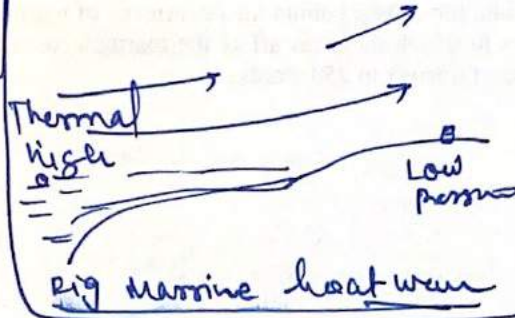 Thermal
high
Low
pressu
Fig Marine heat wave